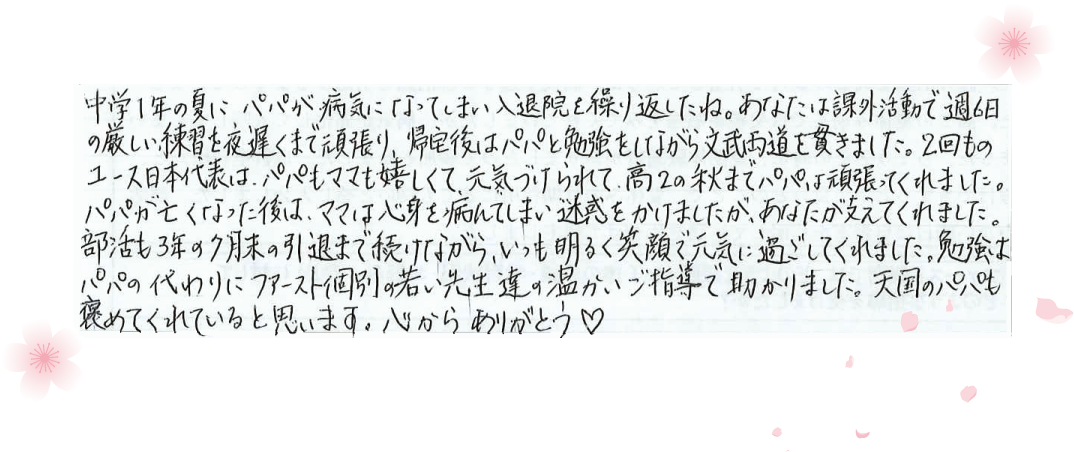 中学1年の夏に パパが 病気になってしまい入退院を繰り返したね。あなたは課外活動で週6日
の厳しい練習を夜遅くまで頑張り、帰宅後はパパと勉強をしながら文武両道を貫きました。2回もの
ユース日本代表は、パパもママも嬉しくて、元気づけられて、高2の秋までパパは頑張ってくれました。
パパが亡くなった後は、ママは心身を病んでしまい迷惑をかけましたが、あなたが支えてくれました。
部活も3年の9月末の引退まで続けながら、いつも明るく笑顔で元気に過ごしてくれました。勉強は
パパの代わりにファースト個別の若い先生達の温かいご指導で助かりました。天国のパパも
褒めてくれていると思います。心からありがとう♡